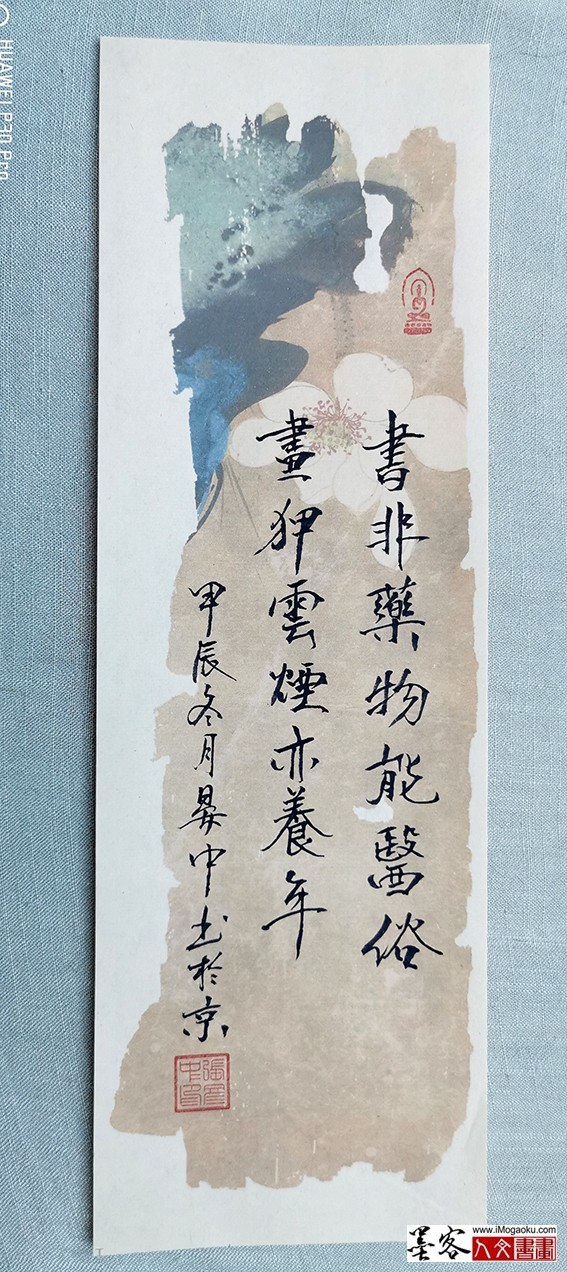 書非藥物能醫俗
畫狎雲煙亦養年
甲辰冬月中书於京
HUAWEI P30 Pro
墨客
www.iMogaoku.com
人文書畫